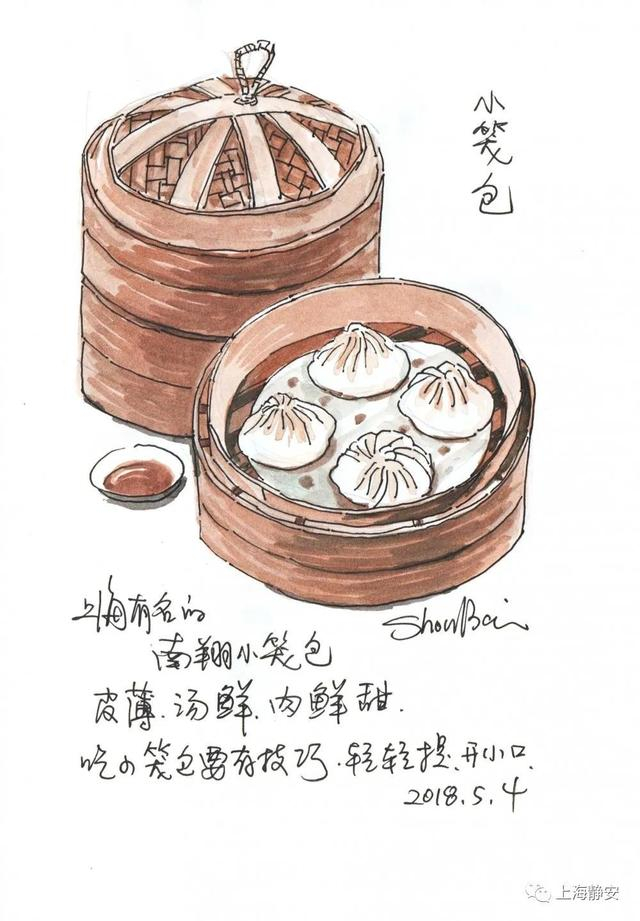 小笼包
上海有名的
南翔小笼包
皮薄.汤鲜.肉鲜甜.
吃小笼包要有技巧.轻轻提.开小口.
2018.5.4
ShouBai
上海静安